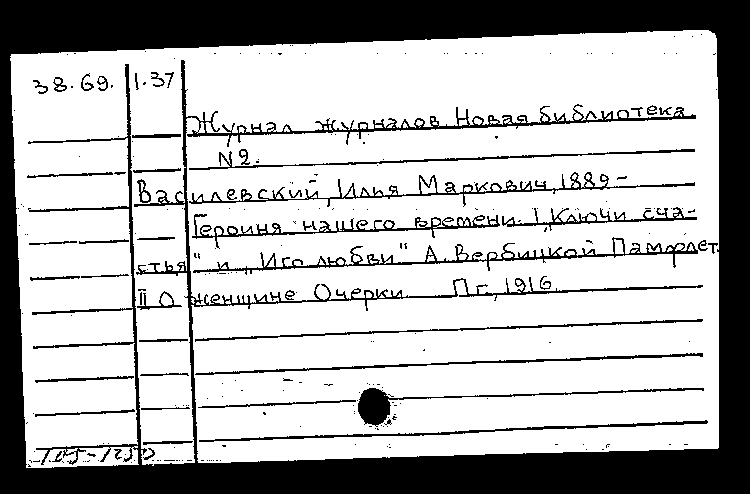 38.69. 1.37
Журнал журналов Новая библиотека
N2.
Василевский, Илья Маркович, 1889-
Героиня нашего времени. I „Ключи сча-
стья" и „Иго любви" А. Вербицкой Памфлет.
II О женщине Очерки Пг., 1916.